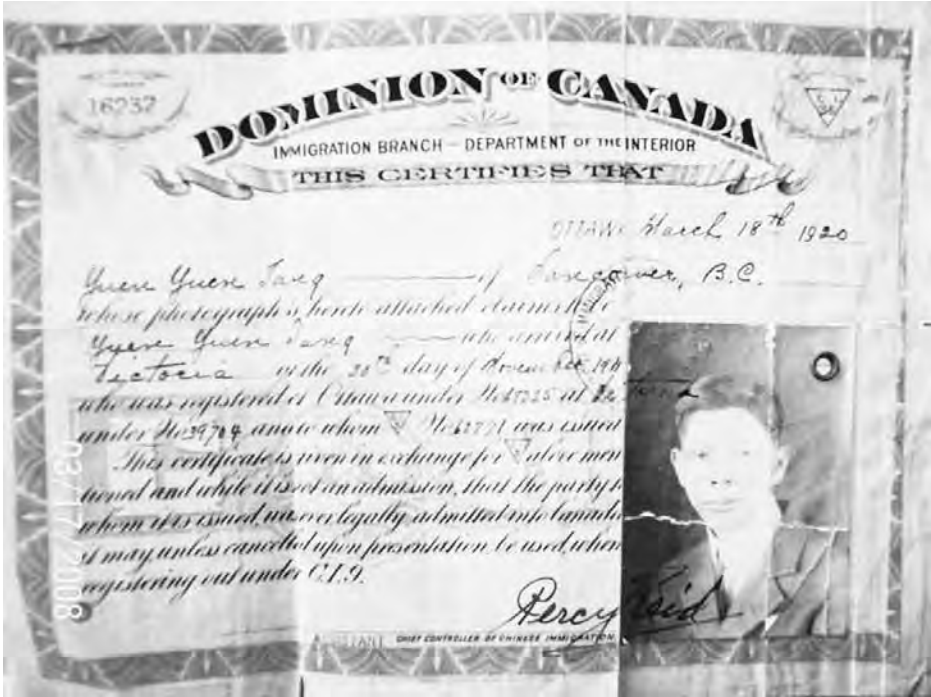 16237
C.I.
36
DOMINION OF CANADA
IMMIGRATION BRANCH – DEPARTMENT OF THE INTERIOR
THIS CERTIFIES THAT
OTTAWA March 18th 1920
Yuen Yuen Tang of Vancouver, B.C.
whose photograph is hereto attached claims to be
Yuen Yuen Tang who arrived at
Victoria on the 20th day of
who was registered at Ottawa under No at
under No 39704 and to whom No was issued
This certificate is given in exchange for above men
tioned and while it is not an admission, that the party to
whom it is issued, was ever legally admitted into Canada
it may, unless cancelled upon presentation, be used, when
registering out under C.I.9.
Percy Reid
ASSISTANT CHIEF CONTROLLER OF CHINESE IMMIGRATION
03/17/2008